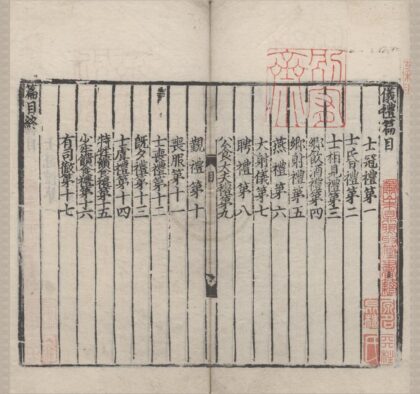 儀禮篇目
士冠禮第一
士昏禮第二
士相見禮第三
鄉飲酒禮第四
鄉射禮第五
燕禮第六
大射儀第七
聘禮第八
公食大夫禮第九
目
覲禮第十
喪服第十一
士喪禮第十二
既夕禮第十三
士虞禮第十四
特牲饋食禮第十五
少牢饋食禮第十六
有司徹第十七
篇目終